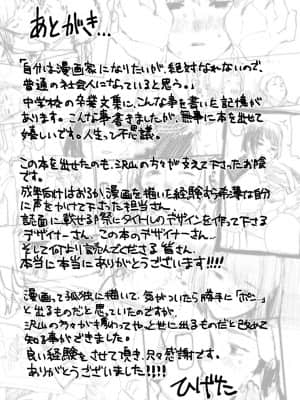 あとがき…
「自分は漫画家になりたいが、絶対なれないので、
普通の社会人になっていると思う。」
中学校の卒業文集に、こんな事を書いた記憶が
あります。こんな事書きましたが、無事に本を出せて
嬉しいです。人生って不思議。
この本を出せたのも、沢山の方々が支えて下さったお陰
です。
成年向けはおろか漫画を描いた経験すら希薄な自分
に声をかけて下さった担当さん。
誌面に載せる際にタイトルのデザインを作って下さる
デザイナーさん。この本のデザイナーさん。
そして何より読んでくださる皆さん。
本当に本当にありがとうございます!!!!
漫画って孤独に描いて、気がついたら勝手に「ポン」
と出るものだと思っていたのですが、
沢山の方々が携わってやっと世に出るものだと改めて
知る事ができました。
良い経験をさせて頂き、只々感謝です。
ありがとうございました!!!!
ひげなた